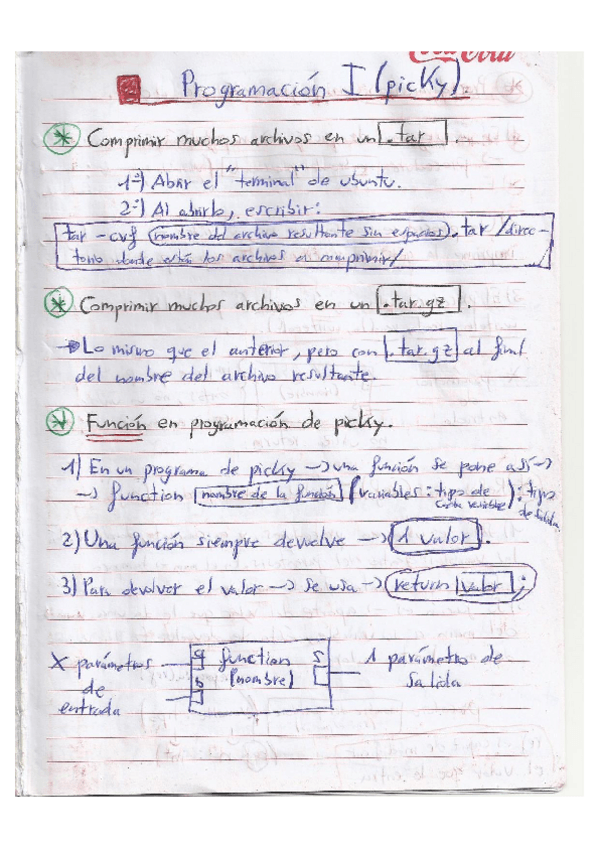 Coca-Cola
Programación I (picky).
* Comprimir muchos archivos en un .tar .
1º) Abrir el "terminal" de ubuntu.
2º) Al abrirlo, escribir:
tar -cvf (nombre del archivo resultante sin espacios).tar /direc-
torio donde están los archivos a comprimir/
* Comprimir muchos archivos en un .tar.gz .
→ Lo mismo que el anterior, pero con .tar.gz al final
del nombre del archivo resultante.
* Función en programación de picky.
1) En un programa de picky → una función se pone así →
→ function nombre de la función (variables : tipo de cada variable) : tipo de salida.
2) Una función siempre devuelve → 1 valor .
3) Para devolver el valor → se usa → return valor ;
X parámetros
de
entrada
a
b
function
(nombre)
s
1 parámetro de
salida